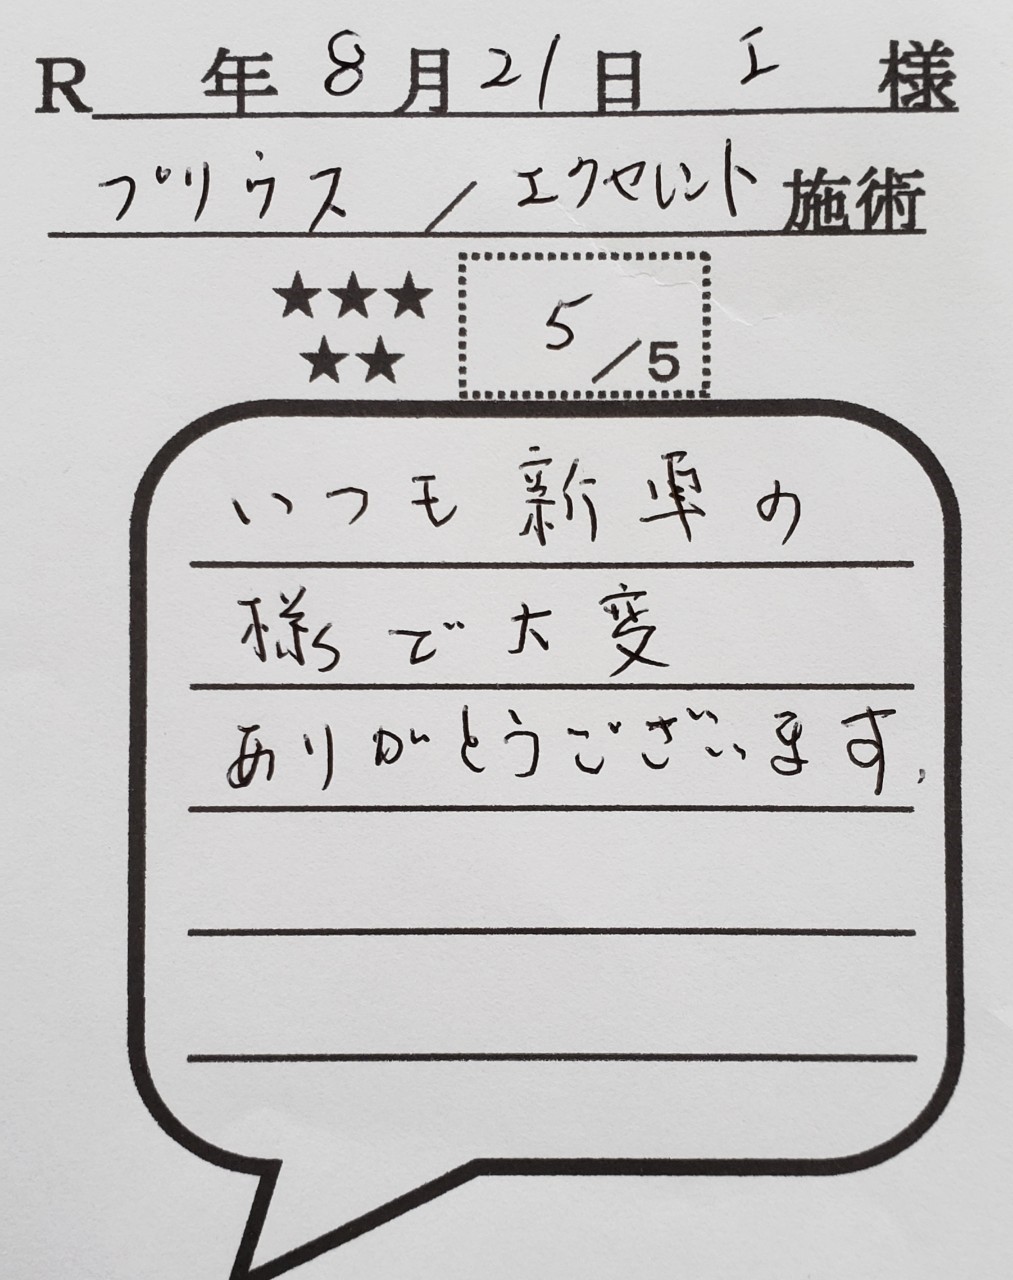 R 年 8月21日 I 様
プリウス / エクセレント 施術
★★★
★★
5/5
いつも新車の
様で大変
ありがとうございます.